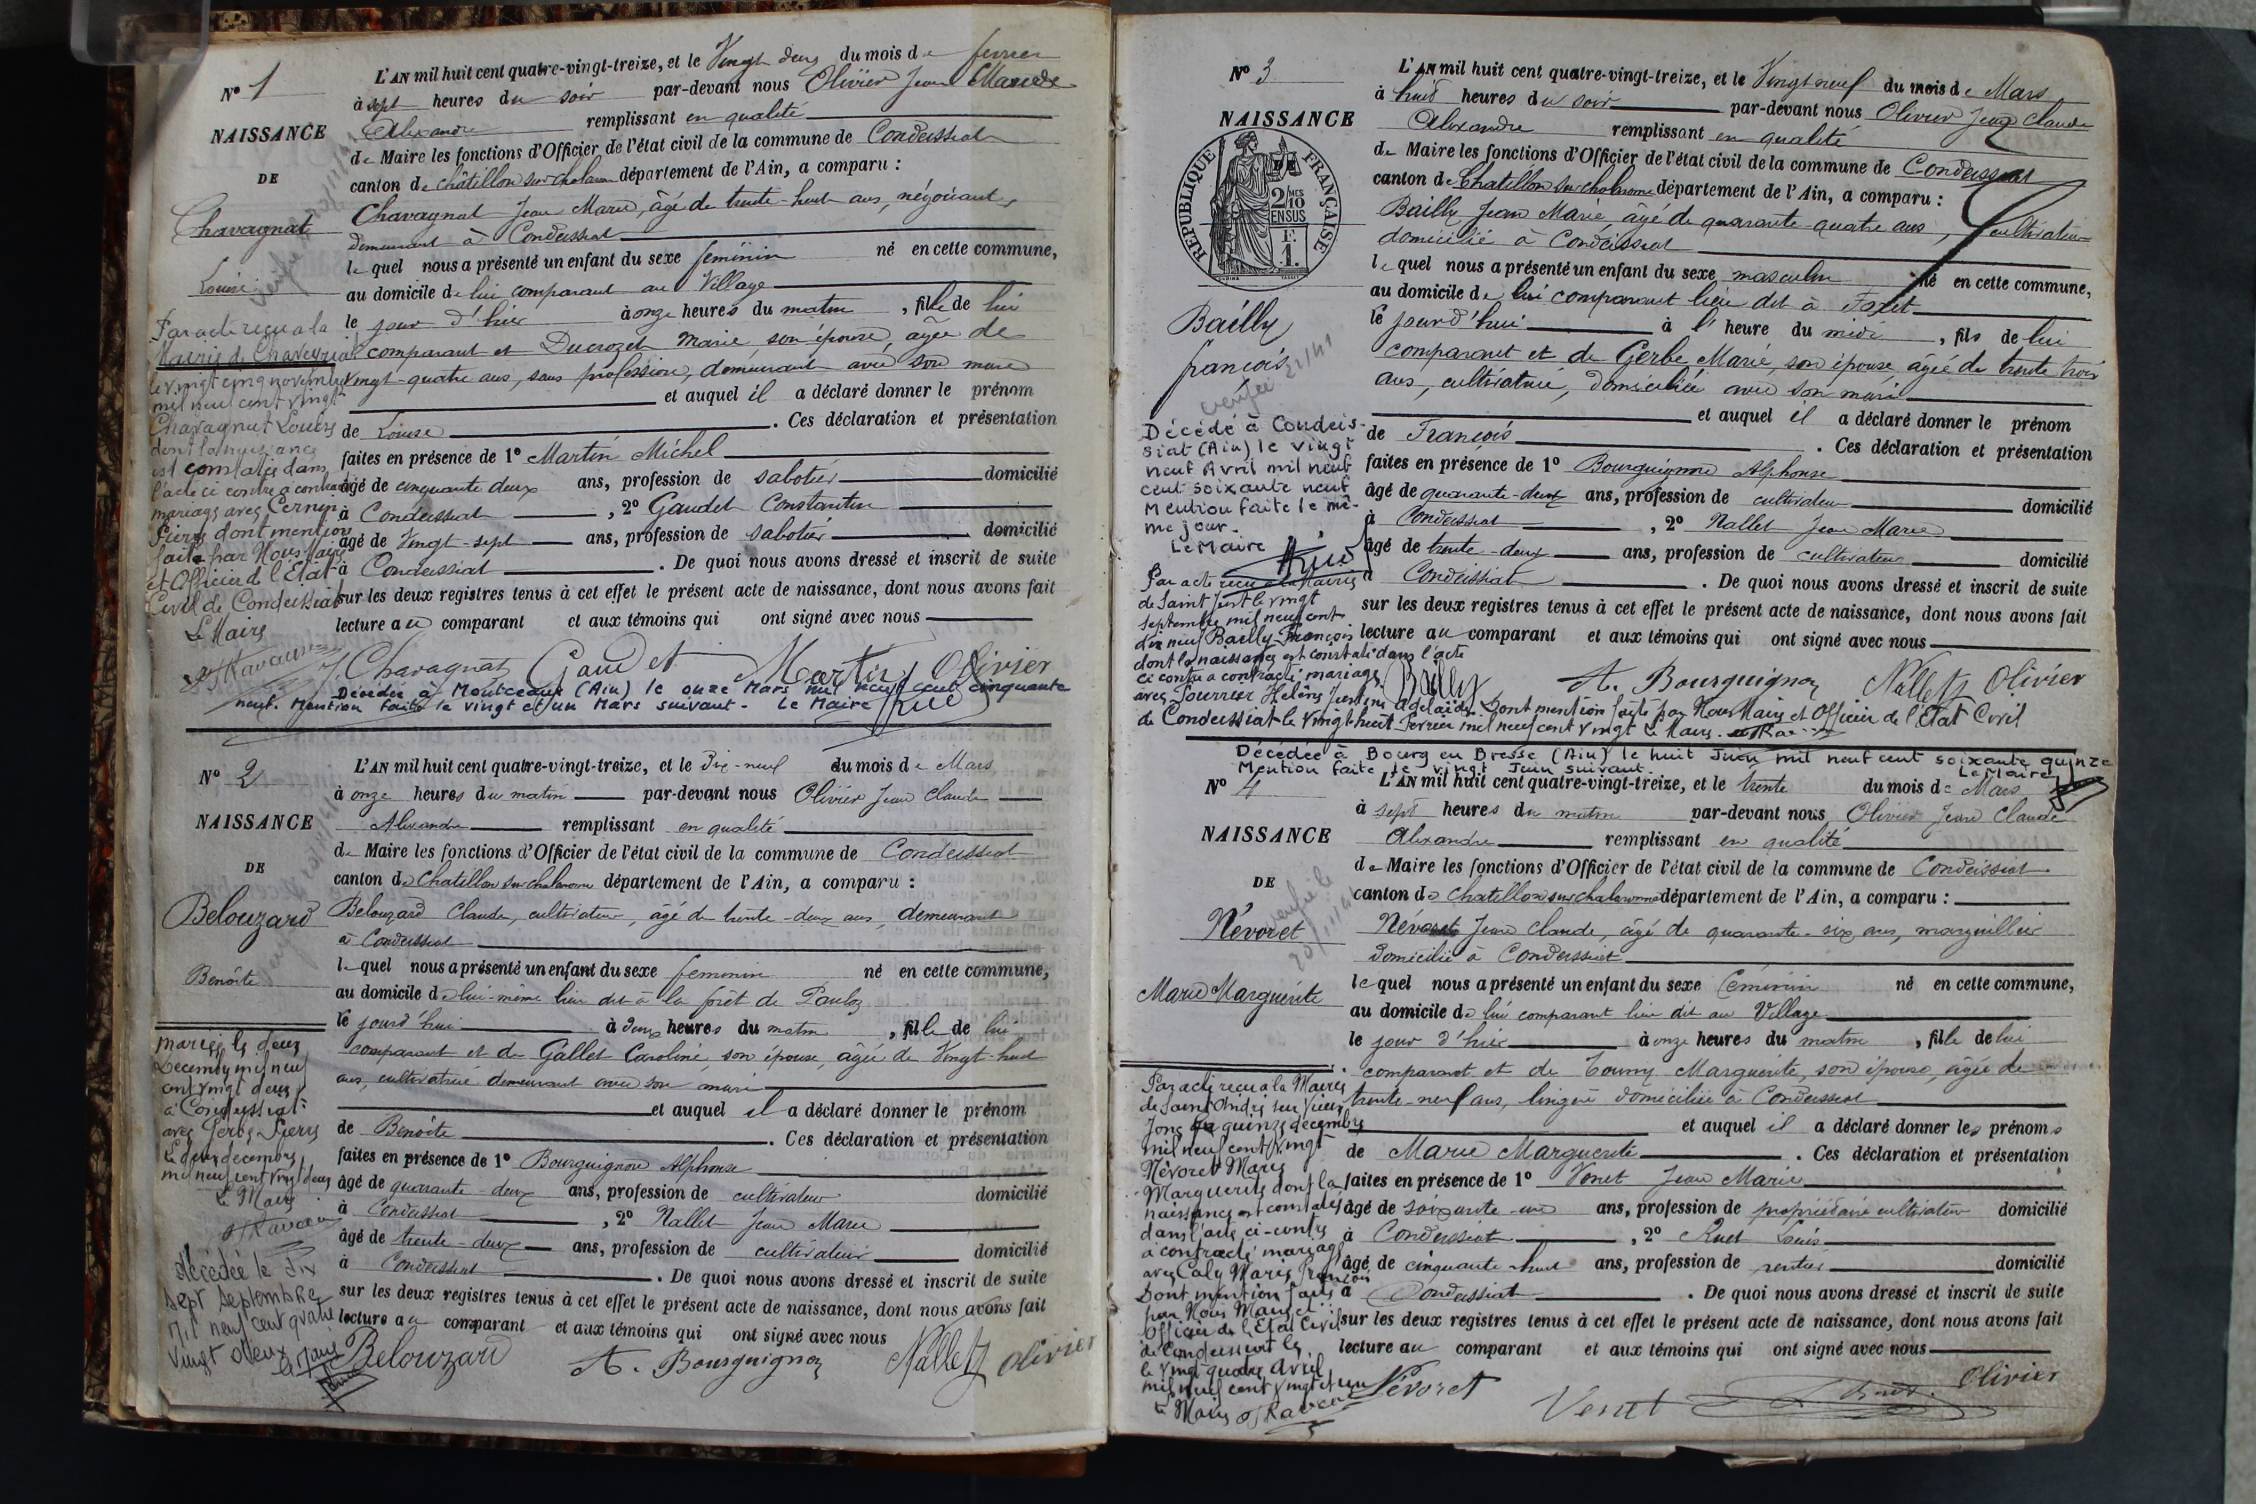 N° 1
NAISSANCE
DE
Chavagnat
Louise
L'AN mil huit cent quatre-vingt-treize, et le Vingt deux du mois de fevrier
à sept heures du soir par-devant nous Olivier Jean Claude
Alexandre remplissant en qualité
de Maire les fonctions d'Officier de l'état civil de la commune de Condeissiat
canton de Châtillon sur chalaronne département de l'Ain, a comparu :
Chavagnat Jean Marie, âgé de trente-huit ans, négociant,
demeurant à Condeissiat
lequel nous a présenté un enfant du sexe féminin né en cette commune,
au domicile de lui comparant au Village
le jour d'hier à onze heures du matin, fille de lui
comparant et Ducrozet Marie son épouse, âgée de
vingt-quatre ans, sans profession, demeurant avec son mari
et auquel il a déclaré donner le prénom
de Louise. Ces déclaration et présentation
faites en présence de 1° Martin Michel
âgé de cinquante deux ans, profession de sabotier domicilié
à Condeissiat, 2° Gaudet Constantin
âgé de Vingt-sept ans, profession de sabotier domicilié
à Condeissiat. De quoi nous avons dressé et inscrit de suite
sur les deux registres tenus à cet effet le présent acte de naissance, dont nous avons fait
lecture au comparant et aux témoins qui ont signé avec nous
J. Chavagnat Gaudet Martin Olivier
Par acte reçu a la
Mairie de Chaveyriat
le vingt cinq novembre
mil neuf cent vingt
Chavagnat Louise
dont la naissance
est constatée dans
l'acte ci contre a contracté
mariage avec Cernin
Pierre dont mention
faite par Nous Maire
et Officier de l'Etat
Civil de Condeissiat
Le Maire
Décédée à Montceaux (Ain) le onze Mars mil neuf cent cinquante
neuf. Mention faite le vingt et un Mars suivant. Le Maire
N° 2
NAISSANCE
DE
Belouzard
Benoîte
L'AN mil huit cent quatre-vingt-treize, et le Dix-neuf du mois de Mars
à onze heures du matin par-devant nous Olivier Jean Claude
Alexandre remplissant en qualité
de Maire les fonctions d'Officier de l'état civil de la commune de Condeissiat
canton de Chatillon sur chalaronne département de l'Ain, a comparu :
Belouzard Claude, cultivateur, âgé de trente-deux ans, demeurant
à Condeissiat
lequel nous a présenté un enfant du sexe feminin né en cette commune,
au domicile de lui-même lieu dit à la forêt de
le jourd'hui à deux heures du matin, fille de lui
comparant et de Gallet Caroline, son épouse, âgée de Vingt-huit
ans, cultivatrice demeurant avec son mari
et auquel il a déclaré donner le prénom
de Benoîte. Ces déclaration et présentation
faites en présence de 1° Bourguignon Alphonse
âgé de quarante-deux ans, profession de cultivateur domicilié
à Condeissiat, 2° Nallet Jean Marie
âgé de trente-deux ans, profession de cultivateur domicilié
à Condeissiat. De quoi nous avons dressé et inscrit de suite
sur les deux registres tenus à cet effet le présent acte de naissance, dont nous avons fait
lecture au comparant et aux témoins qui ont signé avec nous
Belouzard A. Bourguignon Nallet Olivier
mariée le deux
Decembre mil neuf
cent vingt deux
à Condeyssiat
avec Pierre
le deux decembre
mil neuf cent vingt deux
Le Maire
décédée le Dix
sept Septembre
Mil neuf cent quatre
vingt deux
Le Maire
N° 3
NAISSANCE
RÉPUBLIQUE FRANÇAISE
2/10
EN SUS
F.
1.
Bailly
françois
L'AN mil huit cent quatre-vingt-treize, et le Vingt neuf du mois de Mars
à huit heures du soir par-devant nous Olivier Jean Claude
Alexandre remplissant en qualité
de Maire les fonctions d'Officier de l'état civil de la commune de Condeissiat
canton de Chatillon sur chalaronne département de l'Ain, a comparu :
Bailly Jean Marie âgé de quarante-quatre ans, cultivateur
domicilié à Condeissiat
lequel nous a présenté un enfant du sexe masculin né en cette commune,
au domicile de lui comparant lieu dit à
le jourd'hui à l'heure du midi, fils de lui
comparant et de Gerbe Marie, son épouse âgée de trente trois
ans, cultivatrice, domiciliée avec son mari
et auquel il a déclaré donner le prénom
de François. Ces déclaration et présentation
faites en présence de 1° Bourguignon Alphonse
âgé de quarante-deux ans, profession de cultivateur domicilié
à Condeissiat, 2° Nallet Jean Marie
âgé de trente-deux ans, profession de cultivateur domicilié
à Condeissiat. De quoi nous avons dressé et inscrit de suite
sur les deux registres tenus à cet effet le présent acte de naissance, dont nous avons fait
lecture au comparant et aux témoins qui ont signé avec nous
Bailly A. Bourguignon Nallet Olivier
Décédé à Condeis-
siat (Ain) le vingt
neuf Avril mil neuf
cent soixante neuf
Mention faite le mê-
me jour.
Le Maire
Par acte reçu a la Mairie
de Saint Just le vingt
Septembre mil neuf cent
dix neuf Bailly François
dont la naissance est constatée dans l'acte
ci contre a contracté mariage
avec Helène Justine Adelaïde. Dont mention faite par Nous Maire et Officier de l'Etat Civil
de Condeissiat le vingt huit Fevrier mil neuf cent vingt Le Maire
Décédée à Bourg en Bresse (Ain) le huit Juin mil neuf cent soixante quinze
Mention faite le vingt Juin suivant. Le Maire
N° 4
NAISSANCE
DE
Névoret
Marie Marguerite
L'AN mil huit cent quatre-vingt-treize, et le trente du mois de Mars
à sept heures du matin par-devant nous Olivier Jean Claude
Alexandre remplissant en qualité
de Maire les fonctions d'Officier de l'état civil de la commune de Condeissiat
canton de Chatillon sur chalaronne département de l'Ain, a comparu :
Névoret Jean Claude, âgé de quarante-six ans, marguillier
domicilié à Condeissiat
lequel nous a présenté un enfant du sexe féminin né en cette commune,
au domicile de lui comparant lieu dit au Village
le jour d'hier à onze heures du matin, fille de lui
comparant et de Marguerite, son épouse, âgée de
trente-neuf ans, lingère domiciliée à Condeissiat
et auquel il a déclaré donner les prénoms
de Marie Marguerite. Ces déclaration et présentation
faites en présence de 1° Venet Jean Marie
âgé de soixante-un ans, profession de propriétaire cultivateur domicilié
à Condeissiat, 2° Ruet Louis
âgé de cinquante-huit ans, profession de rentier domicilié
à Condeissiat. De quoi nous avons dressé et inscrit de suite
sur les deux registres tenus à cet effet le présent acte de naissance, dont nous avons fait
lecture au comparant et aux témoins qui ont signé avec nous
Névoret Venet L. Ruet Olivier
Par acte reçu a la Mairie
de Saint André sur Vieux
Jonc le quinze decembre
mil neuf cent vingt
Névoret Marie
Marguerite dont la
naissance est constatée
dans l'acte ci-contre
a contracté mariage
avec Caly Marie François
Dont mention faite
par Nous Maire et
Officier de l'Etat Civil
de Condeissiat
le vingt quatre Avril
mil neuf cent vingt et un
Le Maire